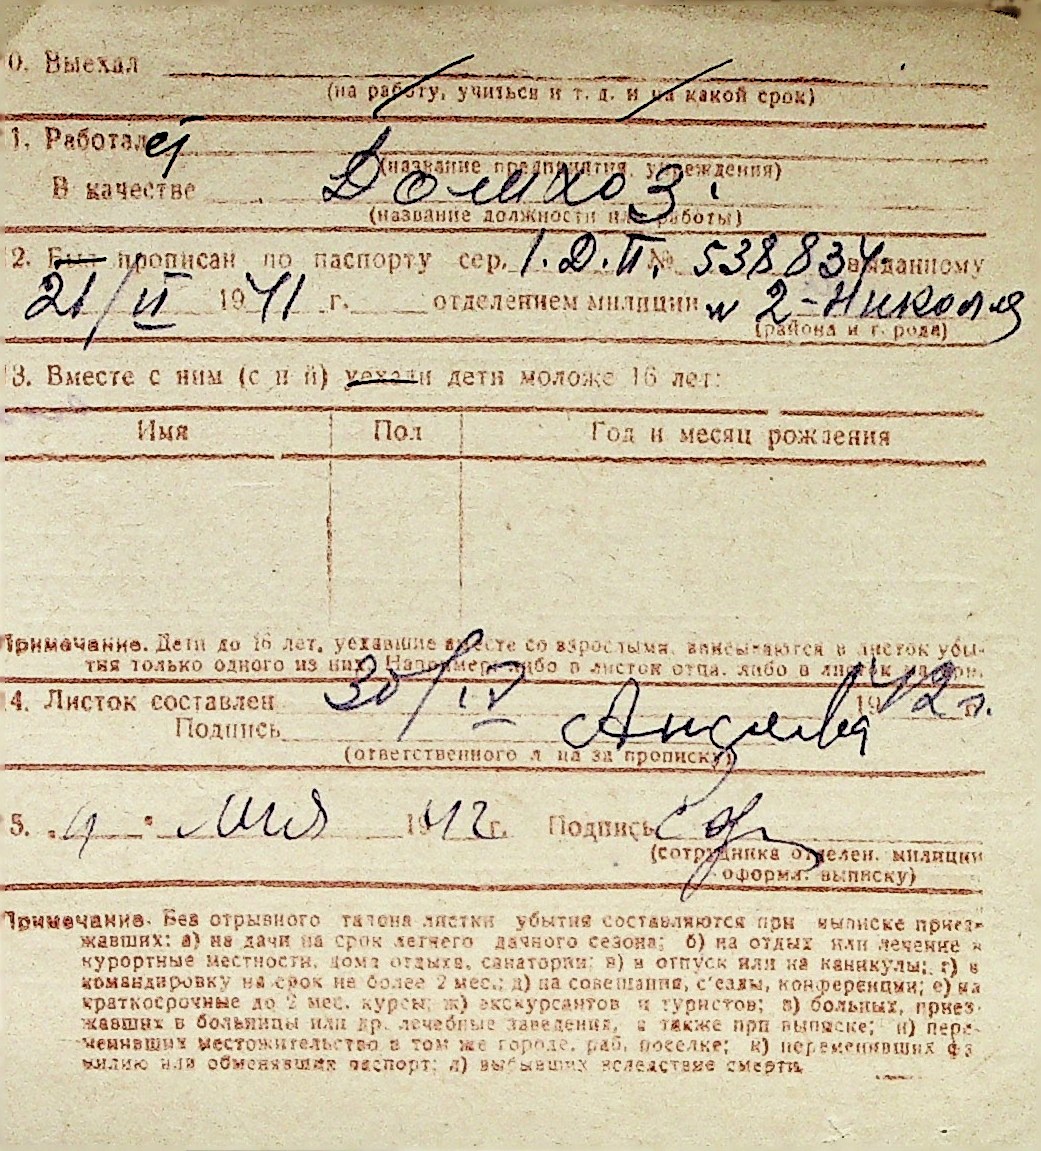 0. Выехал
(на работу, учиться и т. д. и на какой срок)
1. Работал
(название предприятия, учреждения)
В качестве Домхоз.
(название должности или работы)
2. Был прописан по паспорту сер. 1.Д.П. № 538834 выданному
21/II 1941 г. отделением милиции
(района и города)
3. Вместе с ним (с ней) уехали дети моложе 16 лет:
Имя Пол Год и месяц рождения
Примечание. Дети до 16 лет, уехавшие вместе со взрослыми, вписываются в листок убы-
тия только одного из них. Например, либо в листок отца, либо в листок матери.
4. Листок составлен 30/IV 1942 г.
Подпись
(ответственного лица за прописку)
5. "9" мая 1942 г. Подпись
(сотрудника отделен. милиции
оформл. выписку)
Примечание. Без отрывного талона листки убытия составляются при выписке приез-
жавших: а) на дачи на срок летнего дачного сезона; б) на отдых или лечение в
курортные местности, дома отдыха, санатории; в) в отпуск или на каникулы; г) в
командировку на срок не более 2 мес.; д) на совещания, с'езды, конференции; е) на
краткосрочные до 2 мес. курсы; ж) экскурсантов и туристов; з) больных, приез-
жавших в больницы или др. лечебные заведения, а также при выписке; и) пере-
менивших местожительство в том же городе, раб. поселке; к) переменивших фа-
милию или обменявших паспорт; л) выбывших вследствие смерти.